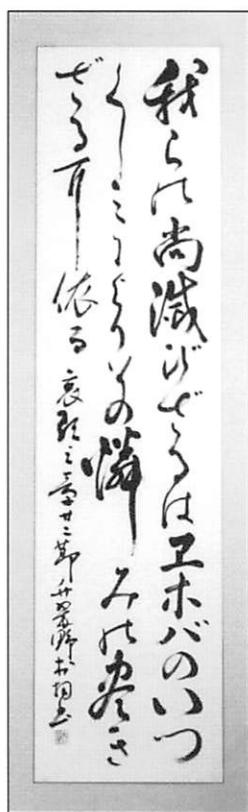 我らの尚滅びざるはヱホバのいつ
くしみによりその憐みの盡き
ざるに依る 哀歌三章廿二節